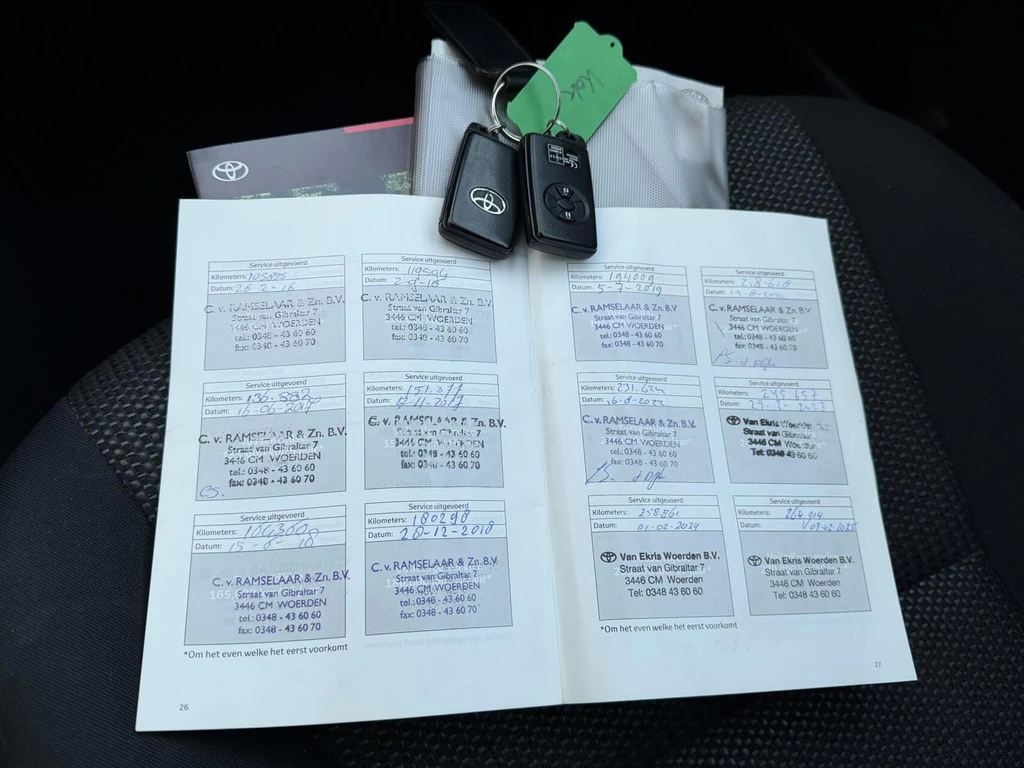 Service uitgevoerd
Kilometers: 105825
Datum: 26-2-16
C. v. RAMSELAAR & Zn. B.V.
Straat van Gibraltar 7
3446 CM WOERDEN
tel.: 0348 - 43 60 60
fax: 0348 - 43 60 70
Service uitgevoerd
Kilometers: 119594
Datum:
C. v. RAMSELAAR & Zn. B.V.
Straat van Gibraltar 7
3446 CM WOERDEN
tel.: 0348 - 43 60 60
fax: 0348 - 43 60 70
Service uitgevoerd
Kilometers: 136-582
Datum: 16-06-2017
C. v. RAMSELAAR & Zn. B.V.
Straat van Gibraltar 7
3446 CM WOERDEN
tel.: 0348 - 43 60 60
fax: 0348 - 43 60 70
CS.
Service uitgevoerd
Kilometers: 151.077
Datum: -11-2017
C. v. RAMSELAAR & Zn. B.V.
Straat van Gibraltar 7
3446 CM WOERDEN
tel.: 0348 - 43 60 60
fax: 0348 - 43 60 70
Service uitgevoerd
Kilometers:
Datum: 15-6-18
C. v. RAMSELAAR & Zn. B.V.
Straat van Gibraltar 7
3446 CM WOERDEN
tel.: 0348 - 43 60 60
fax: 0348 - 43 60 70
Service uitgevoerd
Kilometers: 180298
Datum: 28-12-2018
C. v. RAMSELAAR & Zn. B.V.
Straat van Gibraltar 7
3446 CM WOERDEN
tel.: 0348 - 43 60 60
fax: 0348 - 43 60 70
*Om het even welke het eerst voorkomt
26
Service uitgevoerd
Kilometers: 194009
Datum: 5-7-2019
C. v. RAMSELAAR & Zn. B.V.
Straat van Gibraltar 7
3446 CM WOERDEN
tel.: 0348 - 43 60 60
fax: 0348 - 43 60 70
Service uitgevoerd
Kilometers: 218-618
Datum:
C. v. RAMSELAAR & Zn. B.V.
Straat van Gibraltar 7
3446 CM WOERDEN
tel.: 0348 - 43 60 60
fax: 0348 - 43 60 70
Service uitgevoerd
Kilometers: 231.624
Datum: 16-8-2022
C. v. RAMSELAAR & Zn. B.V.
Straat van Gibraltar 7
3446 CM WOERDEN
tel.: 0348 - 43 60 60
fax: 0348 - 43 60 70
Service uitgevoerd
Kilometers: 245.657
Datum:
Van Ekris Woerden B.V.
Straat van Gibraltar 7
3446 CM Woerden
Tel: 0348 43 60 60
Service uitgevoerd
Kilometers: 258861.
Datum: 01-02-2024
Van Ekris Woerden B.V.
Straat van Gibraltar 7
3446 CM Woerden
Tel: 0348 43 60 60
Service uitgevoerd
Kilometers: 264.914
Datum: 03-02-2025
Van Ekris Woerden B.V.
Straat van Gibraltar 7
3446 CM Woerden
Tel: 0348 43 60 60
*Om het even welke het eerst voorkomt
27